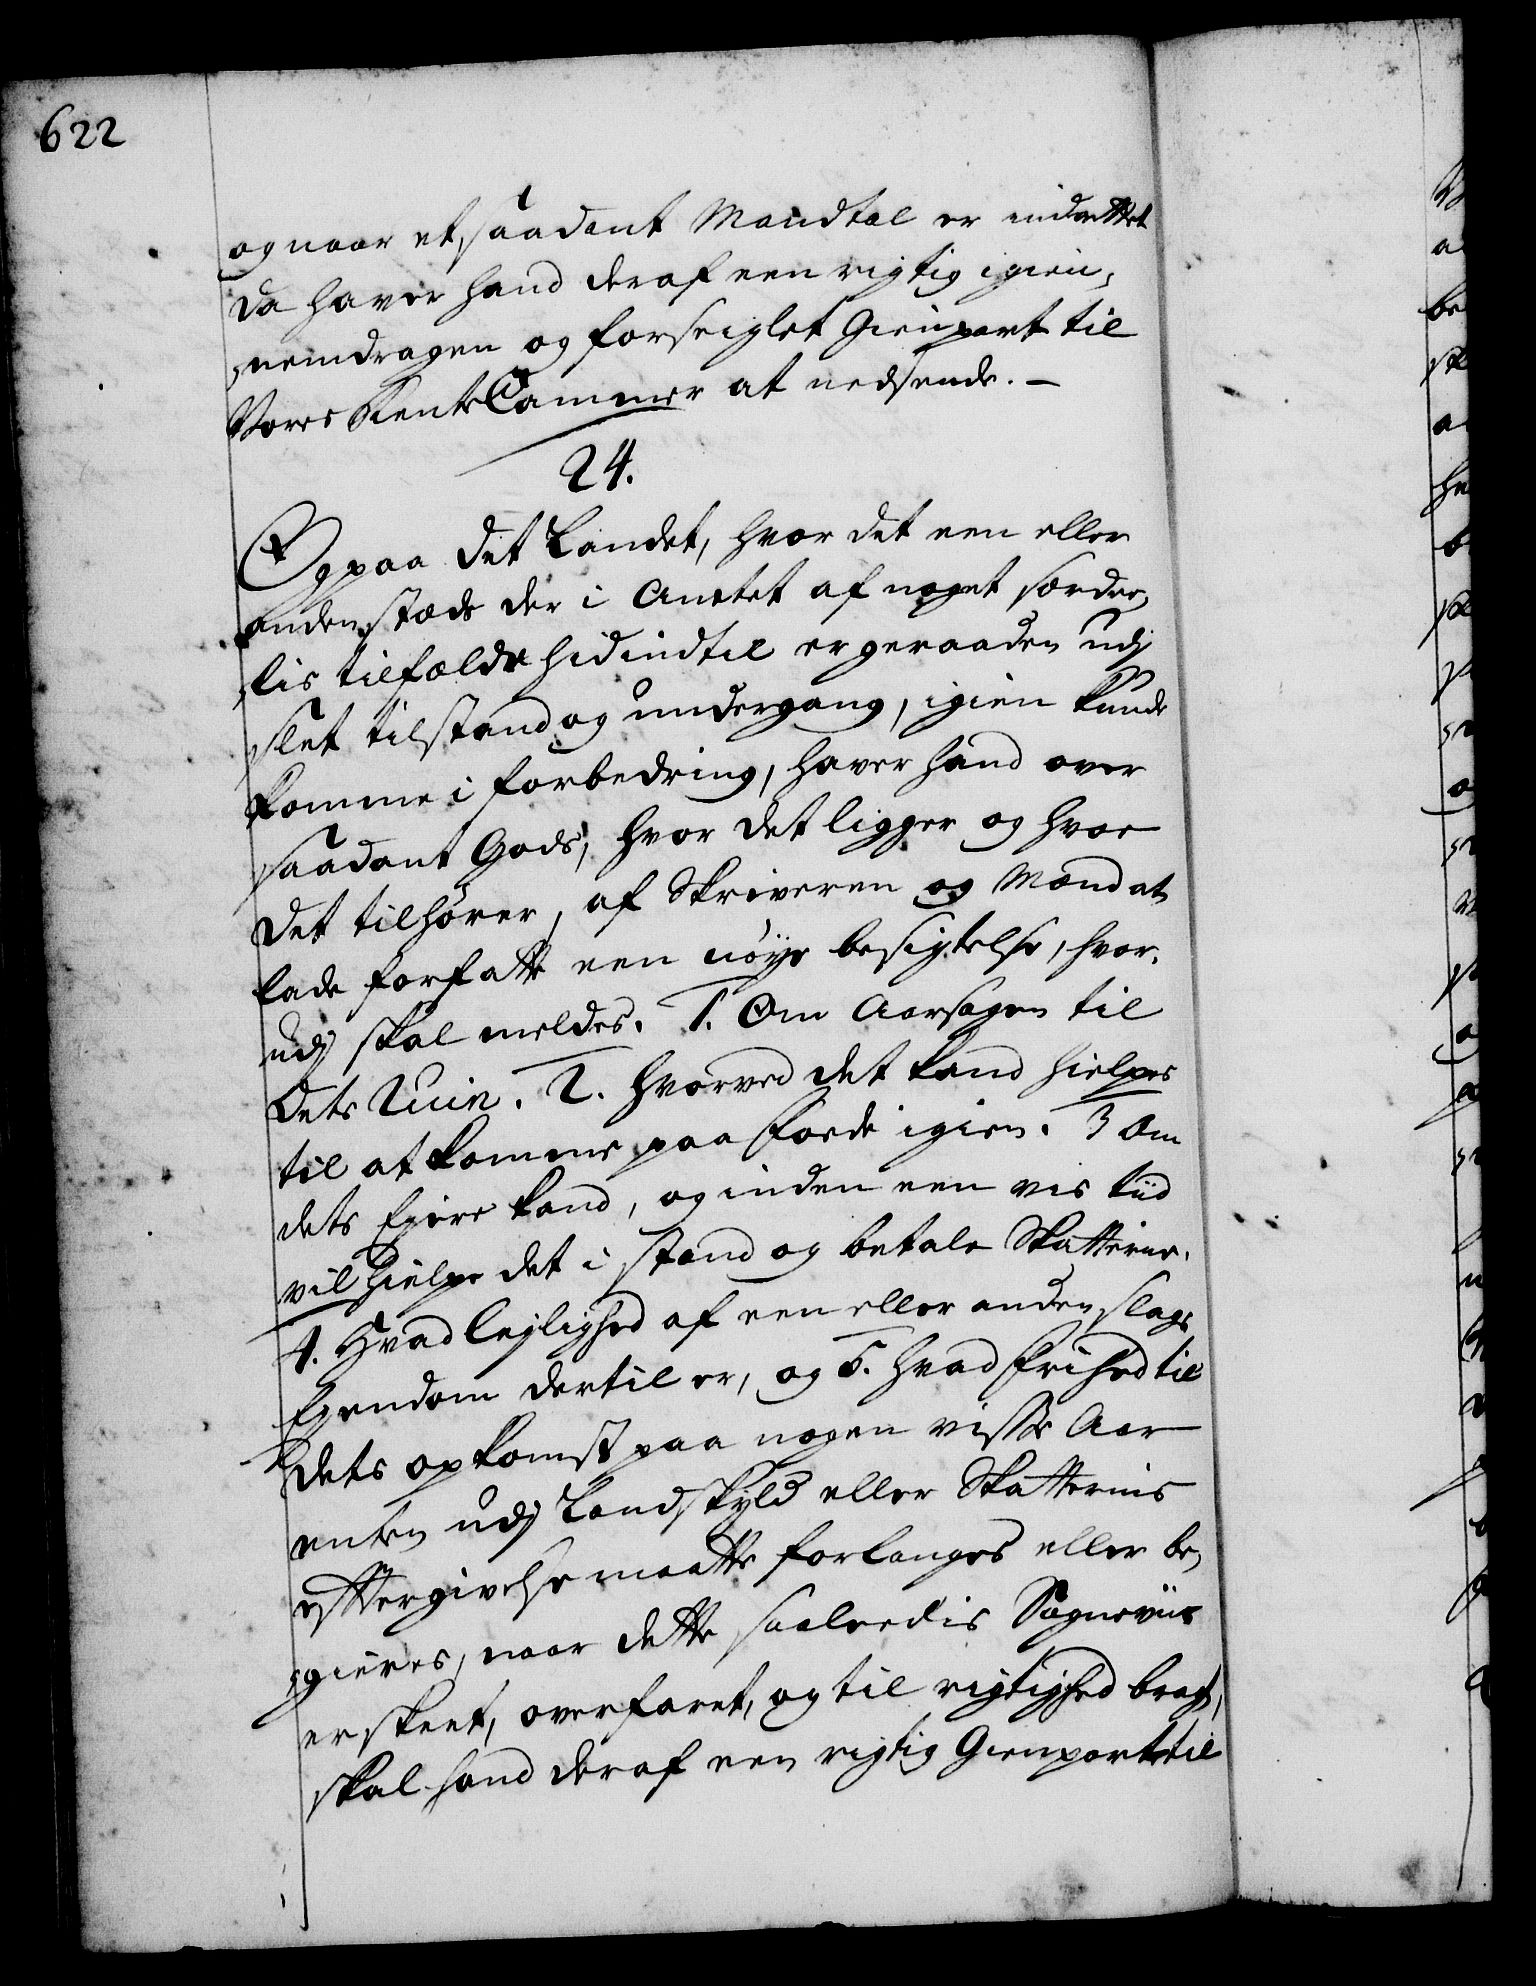 622
og naar et saadant Mandtal er indrettet
da haver hand deraf een rigtig igien,
nemdragen og forseiglet Gienpart til
Vores RenteCammer at nedsende. –
24.
Og paa det Landet, hvor det een eller
anden stæds der i Amtet af noget særde,
lis tilfælde hidindtil er geraaden udj
slet tilstand og undergang, igien kunde
komme i forbedring, haver hand over
saadant Gods, hvor det ligger og hvem
det tilhører, af Skriveren og Mænd at
lade forfatte een nøye besigtelse, hvor,
udj skal meldes. 1. Om Aarsagen til
dets Ruin. 2. Hvorved det kand hielpes
til at komme paa foede igien. 3 Om
dets Ejere kand, og inden een vis tiid
vil hielpe det i stand og betale Skatterne.
4. Hvad lejlighed af een eller anden slags
Ejendom dertil er, og 5. hvad frihed til
dets opkomst paa nogen visse Aar
enten udj Landskyld eller Skatternis
eftergivelse maatte forlanges eller be,
gieres, naar dette saaledis Sogneviis
er skeet, overfaret, og til rigtighed bragt,
skal hand deraf een rigtig Gienpart til